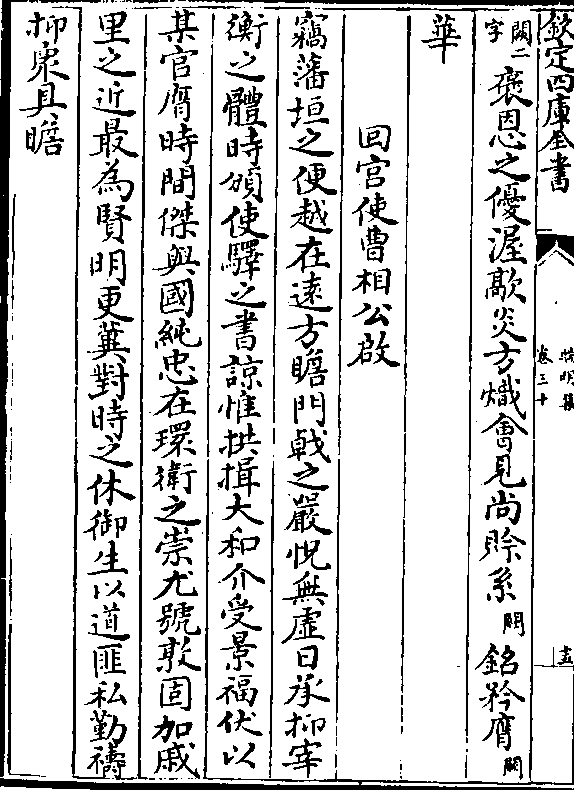 欽定四庫全書
卷三十
闕二字褒恩之優渥歊炎方熾會見尚賒系闕銘矜膺闕
華
回宫使曹相公啟
竊藩垣之便越在遠方瞻門戟之嚴怳無虛日承抑宰
衡之體時頒使驛之書諒惟拱揖大和介受景福伏以
某官膺時間傑與國純忠在環衛之崇尤號敦固加戚
里之近最為賢明更冀對時之休御生以道匪私勤禱
抑衆具瞻